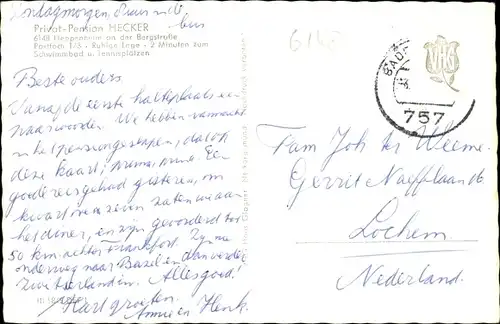 Zondagmorgen, 5 uur
Privat-Pension HECKER
6148 Heppenheim an der Bergstraße
Postfach 173 - Ruhige Lage - 2 Minuten zum
Schwimmbad u. Tennisplätzen
Beste ouders
Vanaf de eerste halteplaats een
paar woorden. We hebben vannacht
in het pension geslapen, dat op
deze kaart, prima, prima. Een
goede reis gehad gisteren, om
kwart over zeven zaten we aan
het diner, en zijn gevorderd tot
50 km achter Frankfort. Zijn nu
onderweg naar Basel en dan verder
Zwitserland in. Alles goed!
Hart. groeten.
Annie en Henk.
BAD
757
Fam Joh ter Weeme
Gerrit Naefflaan
Lochem
Nederland.